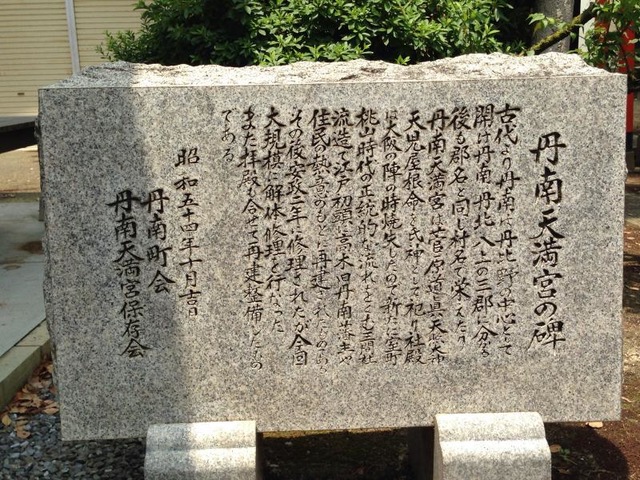 丹南天満宮の碑
古代より丹南は丹比野の中心として
開け丹南丹北八上の三郡に分る
後も郡名と同じ村名で栄えたり
丹南天満宮は菅原道真天穂日命
天児屋根命を氏神として祀り社殿
は大阪の陣の時焼失したので新に室町
桃山時代の正統的な流れをくむ三間社
流造で江戸初頭に高木旧丹南藩主や
住民の熱意のもとに再建されたもの
その後安政二年に修理されたが今回
大規模に解体修理を行なった
また拝殿も合せて再建整備したもの
である
昭和五十四年十月吉日
丹南町会
丹南天満宮保存会